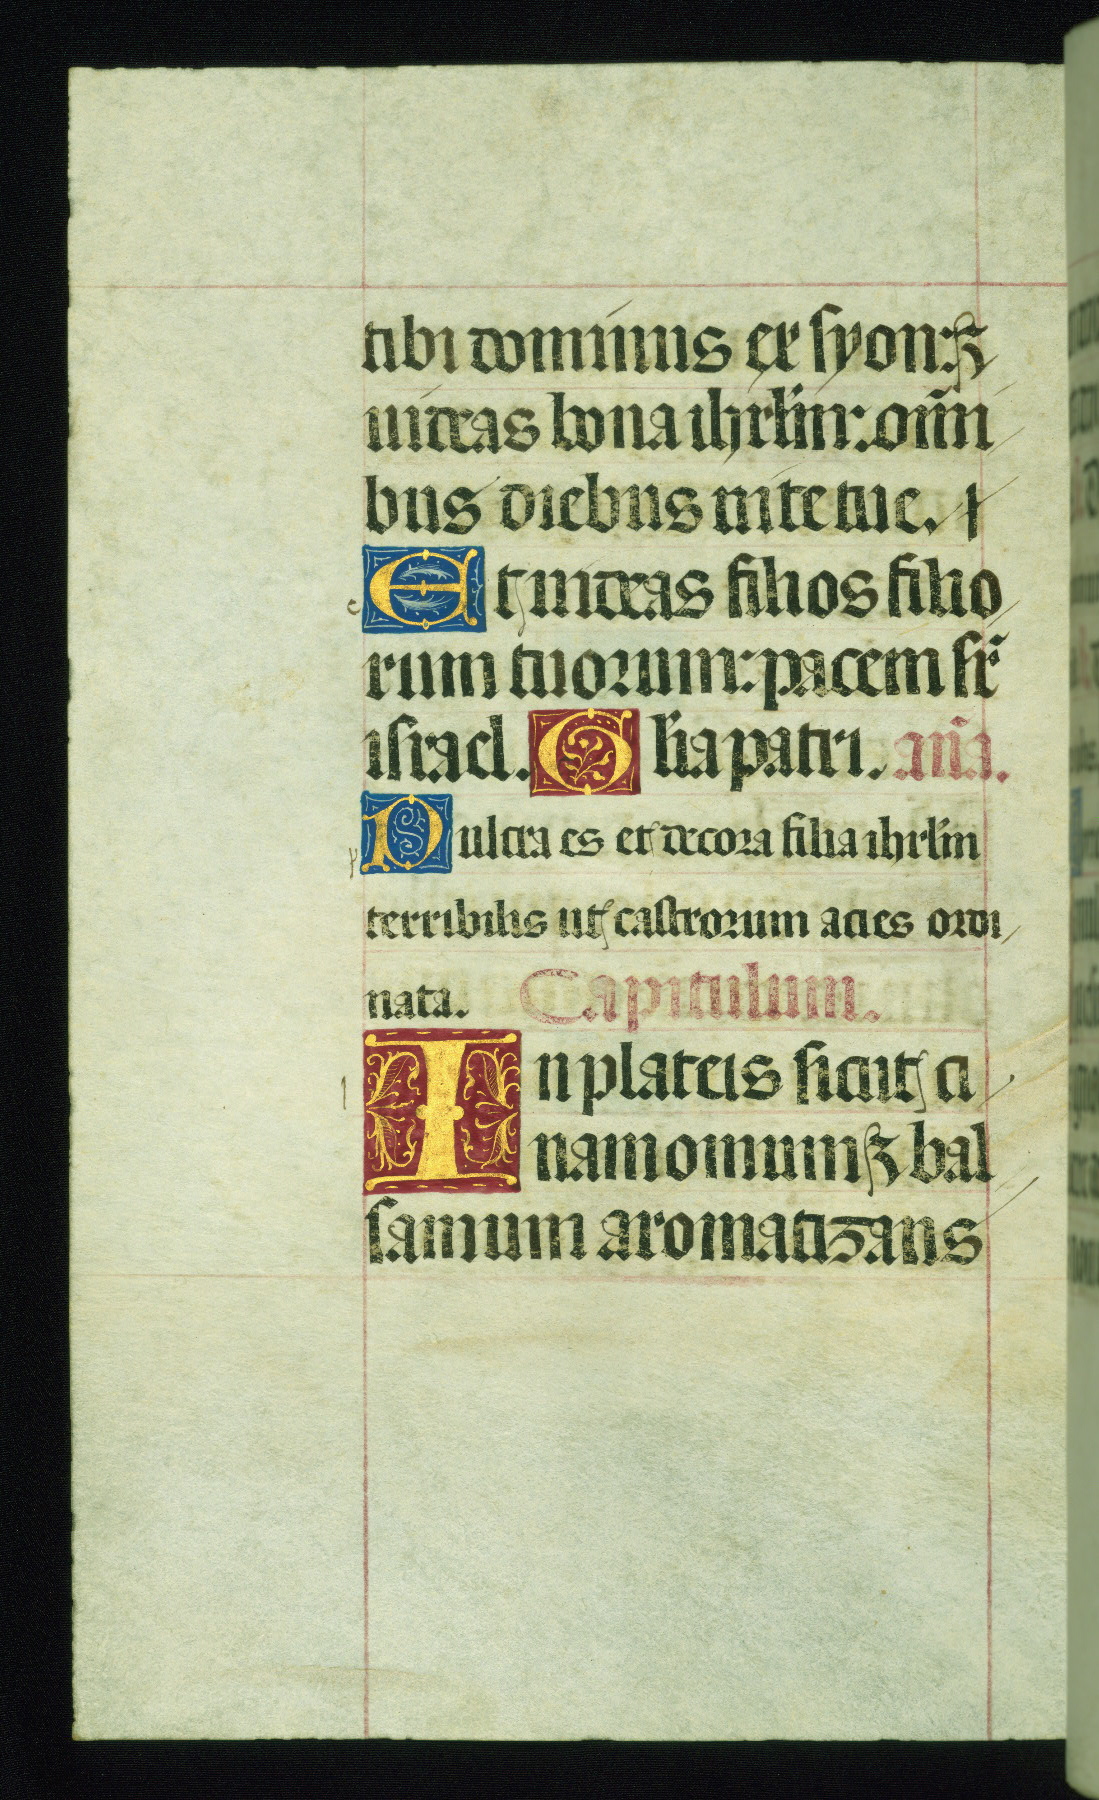 tibi dominus ex syon: ⁊
uideas bona ihrl̄m: om̄i
bus diebus uite tue.
Et uideas filios filio
rum tuorum: pacem sr̄
israel. Glīa patri. an̄a.
Pulcra es et decora filia ihrl̄m
terribilis ut castrorum acies ordi
nata. Capitulum.
In plateis sicut ci
namomum ⁊ bal
samum aromatizans